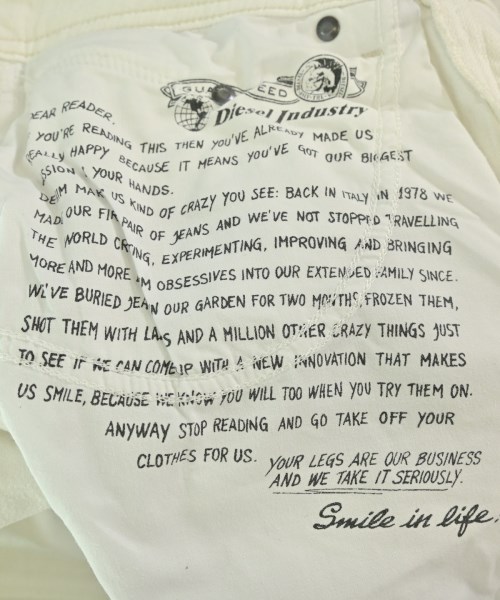 GUA EED
Diesel Industry
EAR READER,
YOU'RE READING THIS THEN YOU'VE ALREADY MADE US
EALLY HAPPY BECAUSE IT MEANS YOU'VE GOT OUR BIGGEST
SSION YOUR HANDS.
DE IM MAK US KIND OF CRAZY YOU SEE: BACK IN ITALY IN 1978 WE
MAD OUR FIR PAIR OF JEANS AND WE'VE NOT STOPPED TRAVELLING
THE WORLD CR TING, EXPERIMENTING, IMPROVING AND BRINGING
MORE AND MORE M OBSESSIVES INTO OUR EXTENDED FAMILY SINCE.
WE'VE BURIED JEAN OUR GARDEN FOR TWO MONTHS, FROZEN THEM,
SHOT THEM WITH LA S AND A MILLION OTHER CRAZY THINGS JUST
TO SEE IF WE CAN COME IP WITH A NEW INNOVATION THAT MAKES
US SMILE, BECAUSE WE KNOW YOU WILL TOO WHEN YOU TRY THEM ON.
ANYWAY STOP READING AND GO TAKE OFF YOUR
CLOTHES FOR US.
YOUR LEGS ARE OUR BUSINESS
AND WE TAKE IT SERIOUSLY.
Smile in life.